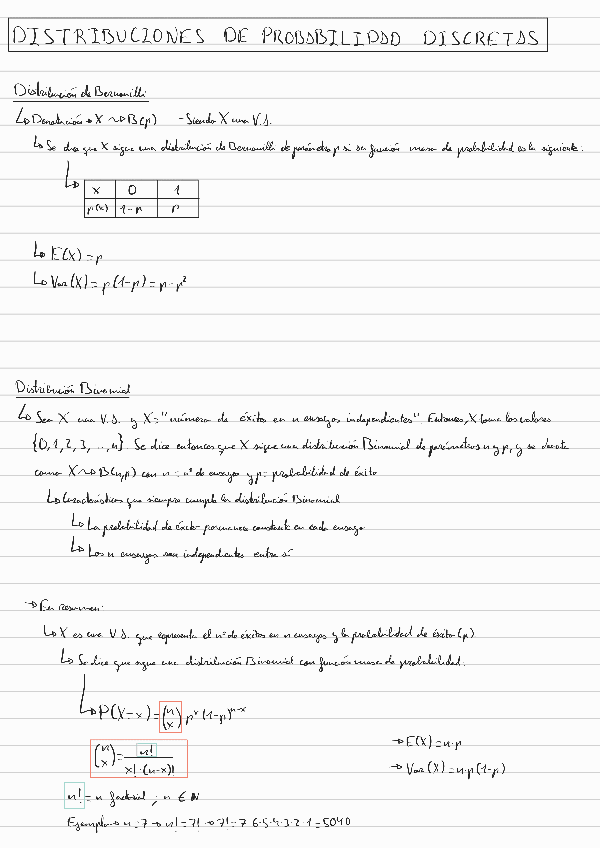 DISTRIBUCIONES DE PROBABILIDAD DISCRETAS
Distribución de Bernouilli
↳ Denotación → X ~> B(p) - Siendo X una V.A.
↳ Se dice que X sigue una distribución de Bernouilli de parámetro p si su función masa de probabilidad es la siguiente:
x 0 1
p(x) 1-p p
↳ E(X) = p
↳ Var(X) = p(1-p) = p - p²
Distribución Binomial
↳ Sea X una V.A. y X = "número de éxitos en n ensayos independientes". Entonces, X toma los valores
{0, 1, 2, 3, ..., n}. Se dice entonces que X sigue una distribución Binomial de parámetros n y p, y se denota
como X ~> B(n,p) con n = nº de ensayos y p = probabilidad de éxito
↳ Características que siempre cumple la distribución Binomial
↳ La probabilidad de éxito permanece constante en cada ensayo
↳ Los n ensayos son independientes entre sí
→ En resumen:
↳ X es una V.A. que representa el nº de éxitos en n ensayos y la probabilidad de éxito (p)
↳ Se dice que sigue una distribución Binomial con función masa de probabilidad:
↳ P(X=x) = (n x) pˣ (1-p)ⁿ⁻ˣ
(n x) = n! / x!·(n-x)!
→ E(X) = n·p
→ Var(X) = n·p(1-p)
n! = n factorial ; n ∈ ℕ
Ejemplo → n = 7 → n! = 7! → 7! = 7·6·5·4·3·2·1 = 5040